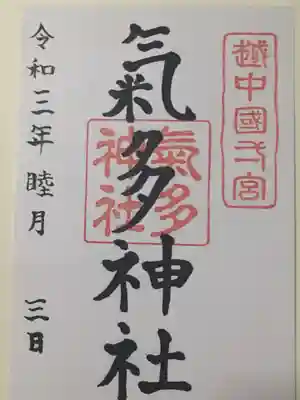 越中國弌宮
氣多神社
氣多
神社
令和三年睦月 三日